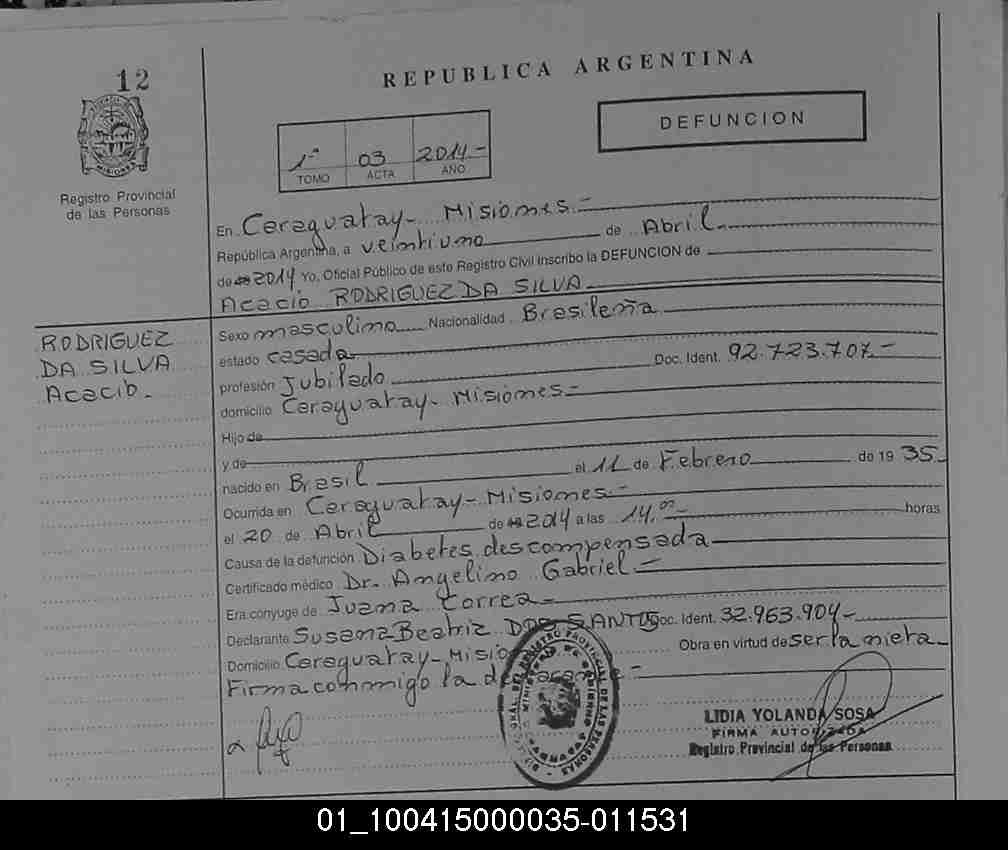 12
REPUBLICA ARGENTINA
MISIONES
Registro Provincial
de las Personas
1ª 03 2014-
TOMO ACTA AÑO
DEFUNCION
En Caraguatay- Misiones-
República Argentina, a veintiuno de Abril
de 2014 Yo, Oficial Público de este Registro Civil inscribo la DEFUNCION de
Acacio RODRIGUEZ DA SILVA
RODRIGUEZ
DA SILVA
Acacio-
Sexo masculino Nacionalidad Brasileña
estado casada Doc. Ident. 92.723.707-
profesión Jubilado
domicilio Caraguatay- Misiones-
Hijo de
y de
nacido en Brasil el 11 de Febrero de 1935
Ocurrida en Caraguatay- Misiones-
el 20 de Abril de 2014 a las 14,00 horas
Causa de la defunción Diabetes descompensada
Certificado médico Dr. Angelino Gabriel-
Era cónyuge de Juana Correa-
Declarante Susana Beatriz DOS SANTOS Doc. Ident. 32.963.904-
Domicilio Caraguatay- Obra en virtud de ser la nieta-
Firma conmigo la
LIDIA YOLANDA SOSA
FIRMA AUTORIZADA
Registro Provincial de las Personas
01_100415000035-011531